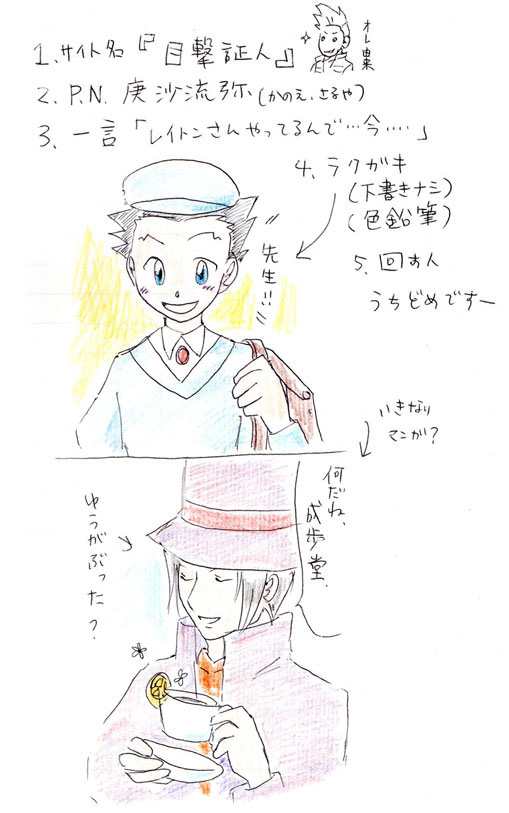 1、サイト名『目撃証人』
オレ出典
2、P.N. 庚 沙流弥(かのえ、さるや)
3、一言「レイトンさんやってるんで…今‥‥」
4、ラクガキ
(下書きナシ)
(色鉛筆)
先生!!
5、回す人
うちどめですー
いきなり
マンガ?
何だね、
成歩堂.
ゆうがぶった?